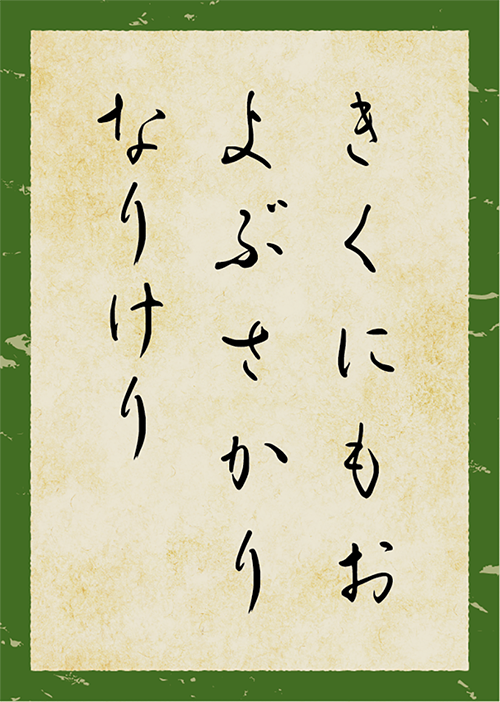 きくにもお
よぶさかり
なりけり